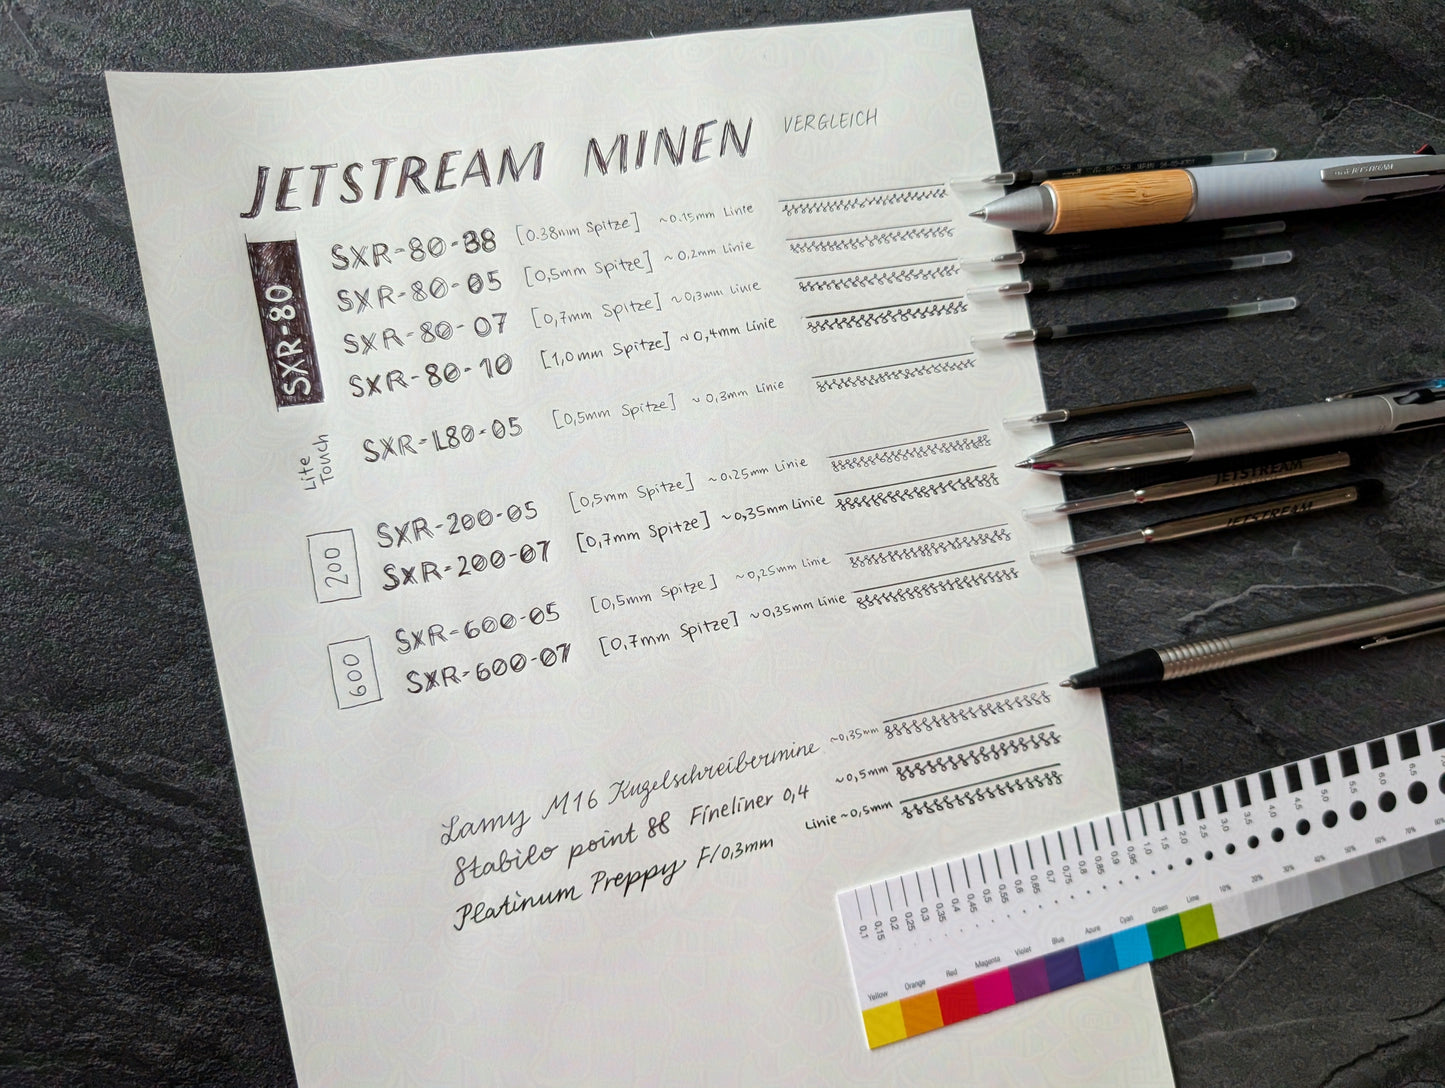 JETSTREAM MINEN VERGLEICH
SXR-80
SXR-80-38 [0.38mm Spitze] ~0.15mm Linie
SXR-80-05 [0,5mm Spitze] ~0,2mm Linie
SXR-80-07 [0,7mm Spitze] ~0,3mm Linie
SXR-80-10 [1,0mm Spitze] ~0,4mm Linie
Lite Touch
SXR-L80-05 [0,5mm Spitze] ~0,3mm Linie
200
SXR-200-05 [0,5mm Spitze] ~0.25mm Linie
SXR-200-07 [0,7mm Spitze] ~0,35mm Linie
600
SXR-600-05 [0,5mm Spitze] ~0,25mm Linie
SXR-600-07 [0,7mm Spitze] ~0,35mm Linie
Lamy M16 Kugelschreibermine ~0,35mm
Stabilo point 88 Fineliner 0,4 ~0,5mm
Platinum Preppy F/0,3mm Linie ~0,5mm
JETSTREAM
JETSTREAM
JETSTREAM
0,1 0,15 0,2 0,25 0,3 0,35 0,4 0,45 0,5 0,55 0,6 0,65 0,7 0,75 0,8 0,85 0,9 0,95 1,0 1,5 2,0 2,5 3,0 3,5 4,0 4,5 5,0 5,5 6,0 6,5
Yellow Orange Red Magenta Violet Blue Azure Cyan Green Lime 10% 20% 30% 40% 50% 60% 70% 80%